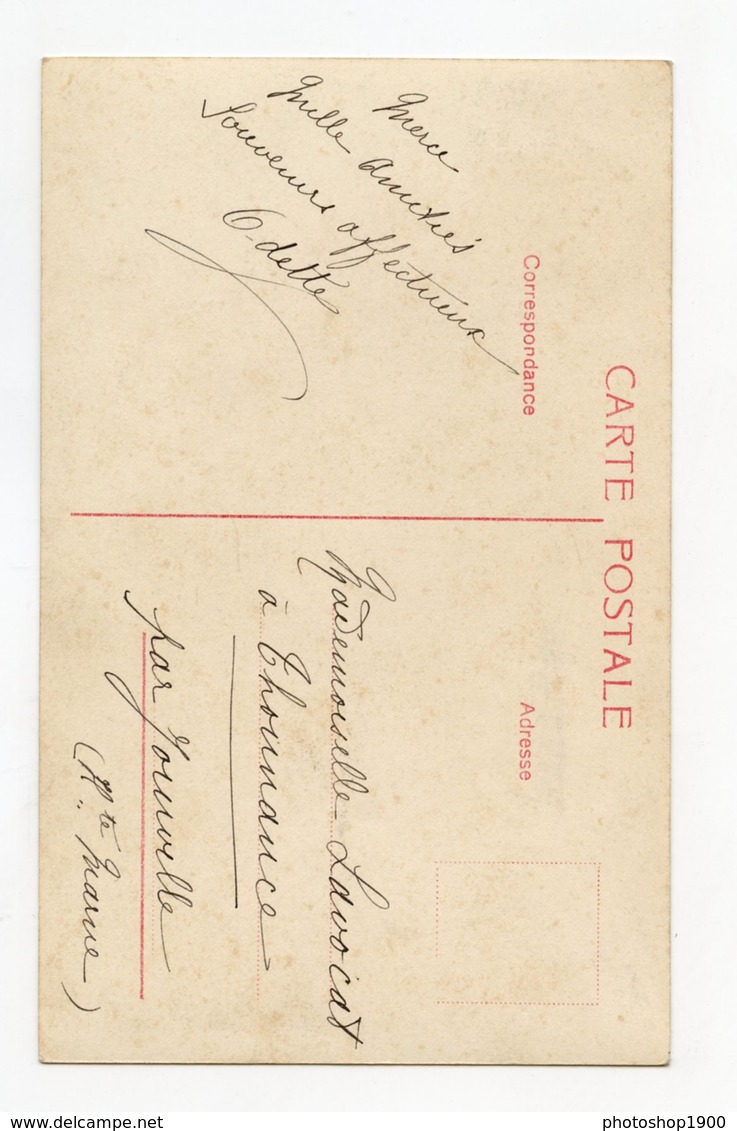 CARTE POSTALE
Correspondance
Merci
Mille amitiés
Souvenirs affectueux
Odette
Adresse
Mademoiselle Lavocat
à Thonnance
par Joinville
(Hte Marne)
delcampe.net
photoshop1900